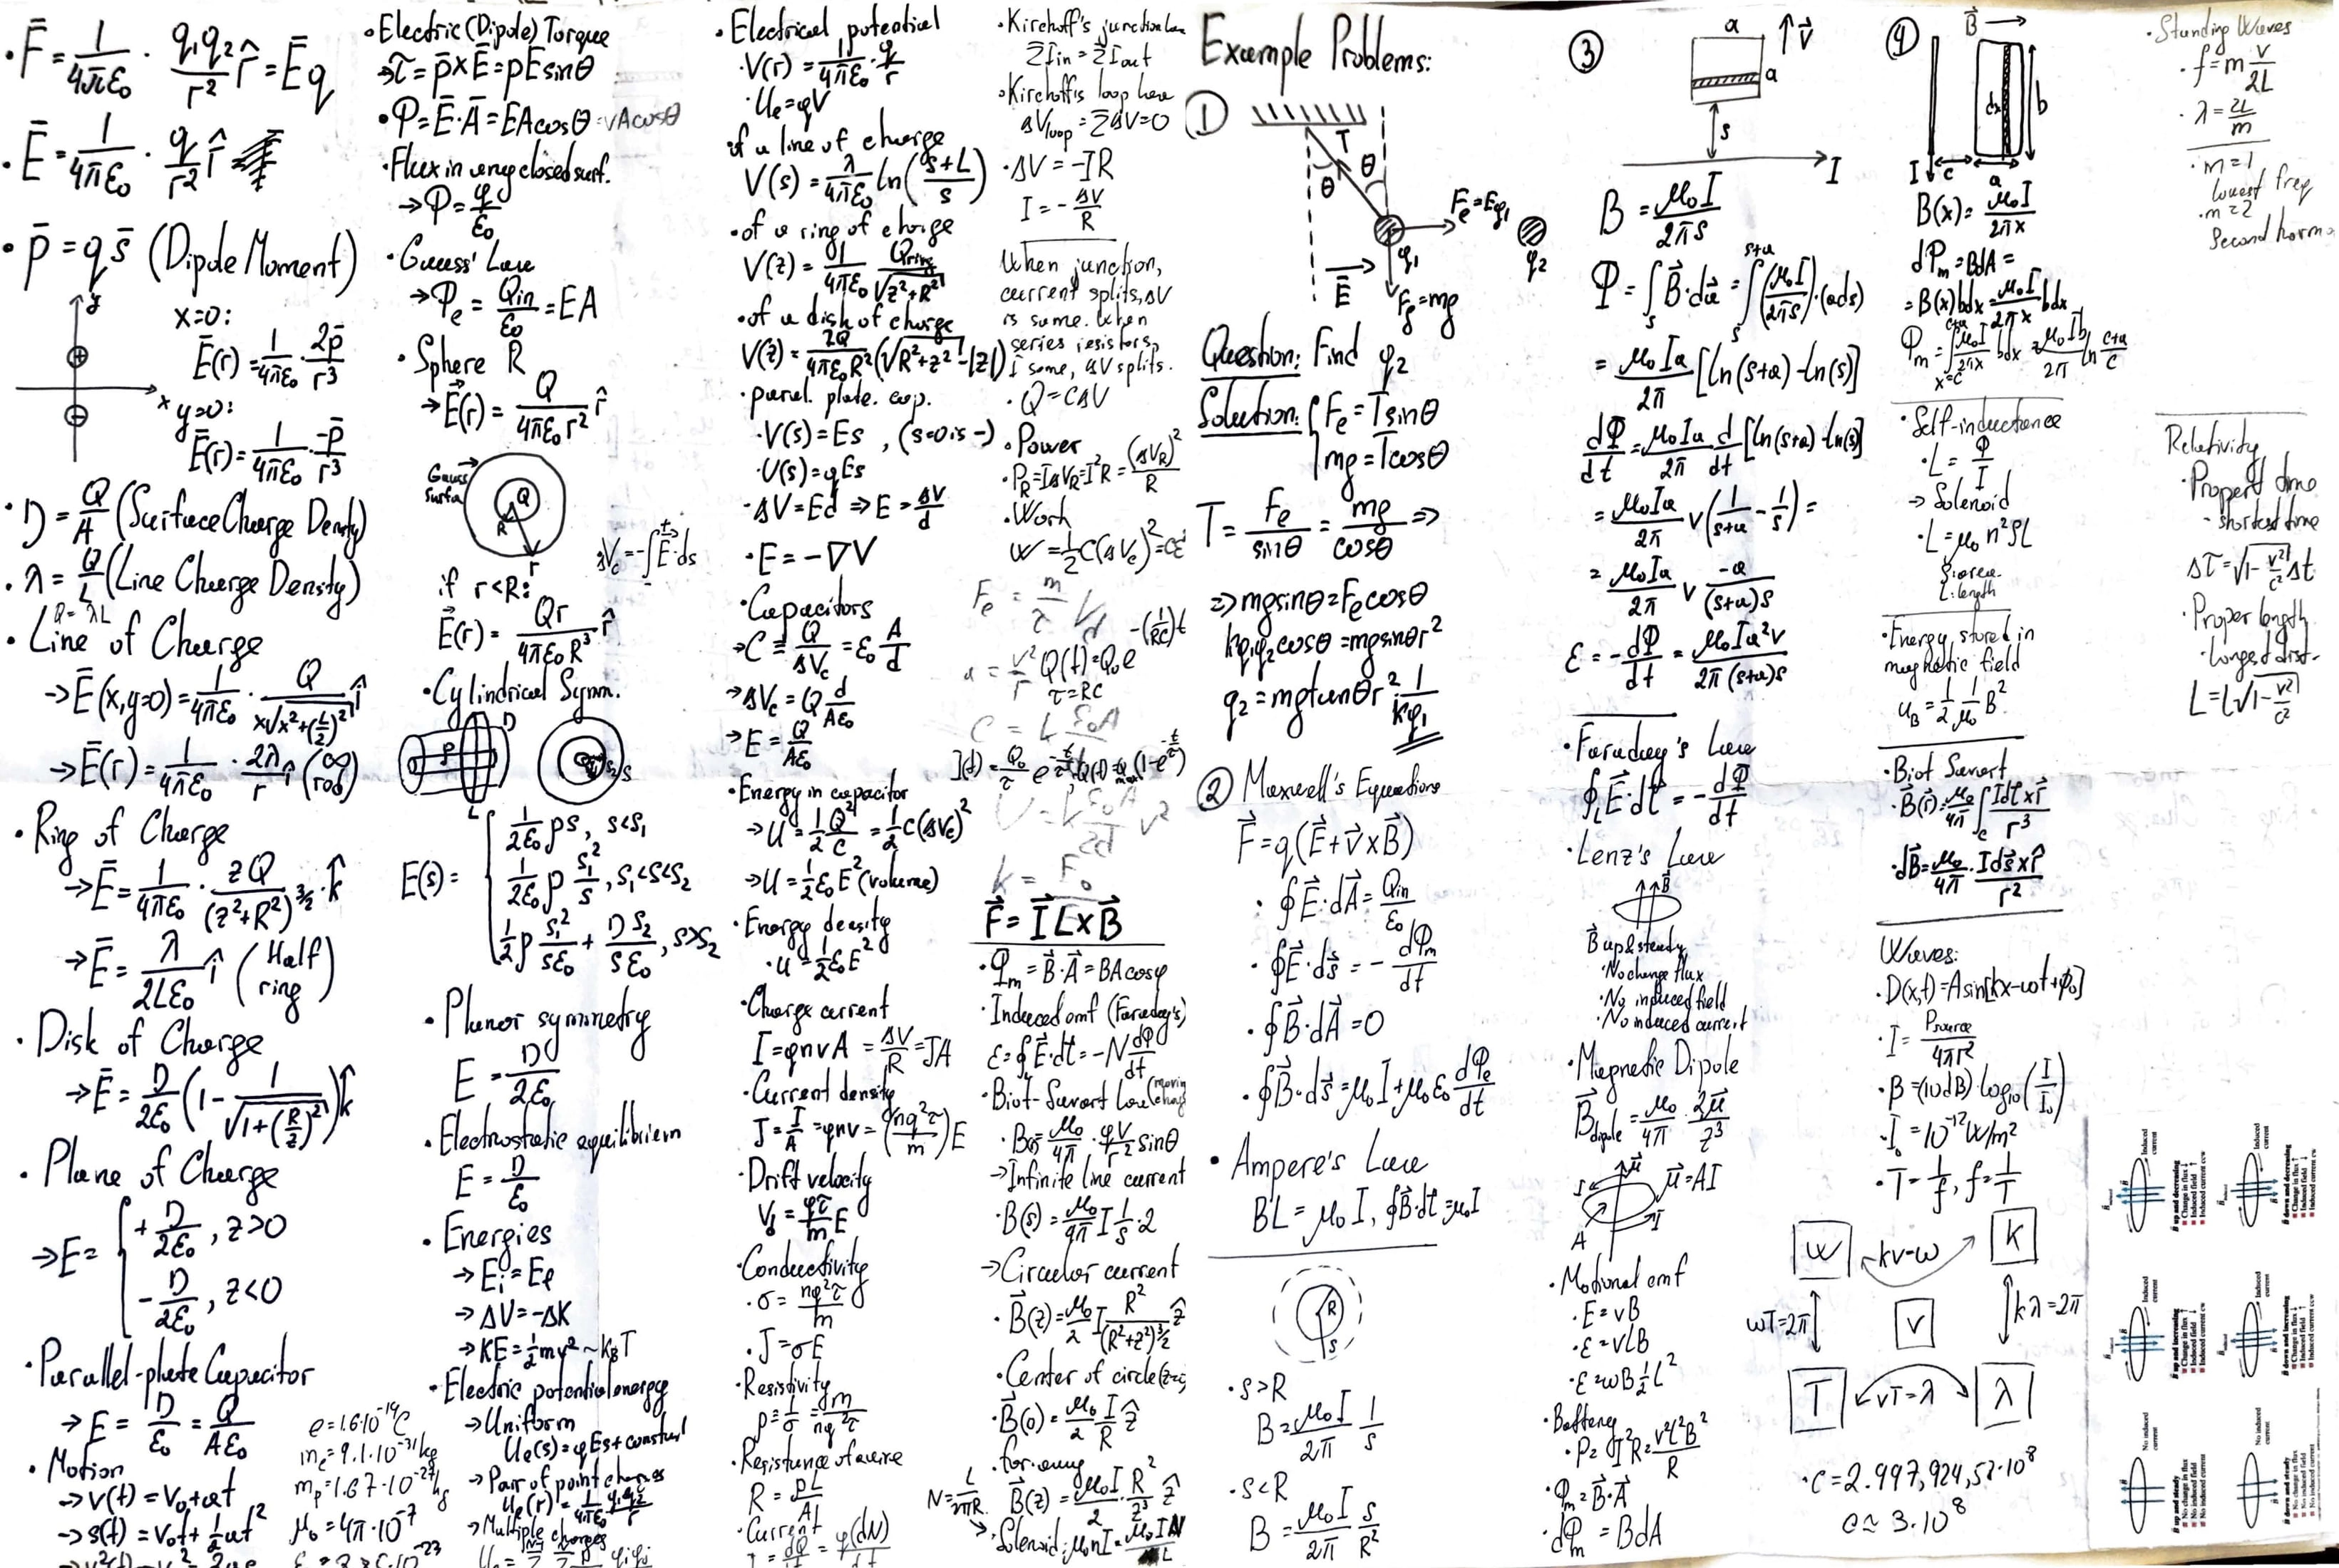 · F̄ = 1/4πε₀ · q₁q₂/r² r̂ = Ēq
· Ē = 1/4πε₀ · q/r² r̂
· p̄ = qs̄ (Dipole Moment)
y
x=0:
Ē(r) = 1/4πε₀ · 2p̄/r³
x
y=0:
Ē(r) = 1/4πε₀ · -p̄/r³
· η = Q/A (Surface Charge Density)
· λ = Q/L (Line Charge Density)
Q = λL
· Line of Charge
→ Ē(x,y=0) = 1/4πε₀ · Q/x√x²+(L/2)² î
→ Ē(r) = 1/4πε₀ · 2λ/r î (∞ rod)
· Ring of Charge
→ Ē = 1/4πε₀ · zQ/(z²+R²)^3/2 · k̂
→ Ē = λ/2Lε₀ î (Half ring)
· Disk of Charge
→ Ē = η/2ε₀ (1 - 1/√1+(R/z)²) k̂
· Plane of Charge
→ E = { +η/2ε₀, z>0
-η/2ε₀, z<0
· Parallel-plate Capacitor
→ E = η/ε₀ = Q/Aε₀
· Motion
→ v(t) = v₀+at
→ s(t) = v₀t + ½at²
e = 1.6·10⁻¹⁹C
mₑ = 9.1·10⁻³¹kg
mₚ = 1.67·10⁻²⁷kg
μ₀ = 4π·10⁻⁷
· Electric (Dipole) Torque
→ τ = p̄×Ē = pE sinθ
· Φ = Ē·Ā = EA cosθ = vA cosθ
· Flux in any closed surf.
→ Φ = q/ε₀
· Gauss' Law
→ Φe = Qin/ε₀ = EA
· Sphere R
→ E⃗(r) = Q/4πε₀r² r̂
Gauss surfa
Q
R
r
if r<R:
E⃗(r) = Qr/4πε₀R³ r̂
ΔVc = -∫E⃗·ds
· Cylindrical Symm.
ρ
η
L
E(s) = { 1/2ε₀ ρs, s<s₁
1/2ε₀ ρ s₁²/s, s₁<s<s₂
½ρ s₁²/sε₀ + ηs₂/sε₀, s>s₂
· Planar symmetry
E = η/2ε₀
· Electrostatic equilibrium
E = η/ε₀
· Energies
→ Ei = Ef
→ ΔV = -ΔK
→ KE = ½mv² ~ kBT
· Electric potential energy
→ Uniform
Ue(s) = qEs + constant
→ Pair of point charges
Ue(r) = 1/4πε₀ q₁q₂/r
→ Multiple charges
· Electrical potential
· V(r) = 1/4πε₀ · q/r
· Ue = qV
of a line of charge
V(s) = λ/4πε₀ ln(s+L/s)
· of a ring of charge
V(z) = 1/4πε₀ Qring/√z²+R²
· of a disk of charge
V(z) = 2Q/4πε₀R² (√R²+z² - |z|)
· paral. plate. cap.
· V(s) = Es, (s=0 is -)
· U(s) = qEs
· ΔV = Ed ⇒ E = ΔV/d
· E = -∇V
· Capacitors
→ C ≡ Q/ΔVc = ε₀ A/d
→ ΔVc = Q d/Aε₀
→ E = Q/Aε₀
· Energy in capacitor
→ U = ½ Q²/C = ½C(ΔVc)²
→ U = ½ε₀E² (volume)
· Energy density
· u = ½ε₀E²
· Charge current
I = qnvA = ΔV/R = JA
· Current density
J = I/A = qnv = (nq²τ/m)E
· Drift velocity
Vd = qτ/m E
· Conductivity
· σ = nq²τ/m
· J = σE
· Resistivity
ρ = 1/σ = m/nq²τ
· Resistance of a wire
R = ρL/A
· Current
I = dQ/dt = q(dN)/dt
· Kirchoff's junction law
ΣIin = ΣIout
· Kirchoff's loop law
ΔVloop = ΣΔV = 0
· ΔV = -IR
I = -ΔV/R
When junction,
current splits, ΔV
is same. When
series resistors,
I same, ΔV splits.
· Q = CΔV
· Power
· PR = IΔVR = I²R = (ΔVR)²/R
· Work
W = ½C(ΔVc)²
a = v²/r
Q(t) = Q₀e^-(1/RC)t
τ = RC
I(t) = Q₀/τ e^-t/τ, Q(t) = Qmax(1-e^-t/τ)
k = F₀
F⃗ = I⃗L×B⃗
· Φm = B⃗·A⃗ = BA cosφ
· Induced emf (Faraday's)
ε = ∮E⃗·dℓ = -N dΦ/dt
· Biot-Savart Law (moving charg
· B = μ₀/4π · qv/r² sinθ
→ Infinite line current
· B(s) = μ₀/4π I 1/s · 2
→ Circular current
· B⃗(z) = μ₀/2 I R²/(R²+z²)^3/2 ẑ
· Center of circle (z=0)
· B⃗(0) = μ₀/2 I/R ẑ
· far away
N = L/2πR
B⃗(z) = μ₀I/2 · R²/z³ ẑ
→ Solenoid: μ₀nI = μ₀IN/L
Example Problems:
①
T
θ
θ
Fe = Eq₁
q₁
q₂
E⃗
Fg = mg
Question: Find q₂
Solution: { Fe = T sinθ
mg = T cosθ
T = Fe/sinθ = mg/cosθ ⇒
⇒ mg sinθ = Fe cosθ
kq₁q₂ cosθ = mg sinθ r²
q₂ = mg tanθ r² · 1/kq₁
② Maxwell's Equations
F⃗ = q(E⃗ + v⃗×B⃗)
· ∮E⃗·dA⃗ = Qin/ε₀
· ∮E⃗·ds⃗ = -dΦm/dt
· ∮B⃗·dA⃗ = 0
· ∮B⃗·ds⃗ = μ₀I + μ₀ε₀ dΦe/dt
· Ampere's Law
BL = μ₀I, ∮B⃗·dℓ = μ₀I
R
s
· s>R
B = μ₀I/2π 1/s
· s<R
B = μ₀I/2π s/R²
③
a
↑v⃗
a
s
I
B = μ₀I/2πs
Φ = ∫B⃗·da⃗ = ∫(μ₀I/2πs)·(ads)
s+a
s
= μ₀Ia/2π [ln(s+a) - ln(s)]
dΦ/dt = μ₀Ia/2π d/dt [ln(s+a) - ln(s)]
= μ₀Ia/2π v(1/s+a - 1/s) =
= μ₀Ia/2π v -a/(s+a)s
ε = -dΦ/dt = μ₀Ia²v/2π(s+a)s
· Faraday's Law
∮E⃗·dℓ = -dΦ/dt
· Lenz's Law
B⃗
B⃗ up & steady
· No change flux
· No induced field
· No induced current
· Magnetic Dipole
B⃗dipole = μ₀/4π · 2μ⃗/z³
μ⃗
μ⃗ = AI
I
A
· Motional emf
· E = vB
· ε = vLB
· ε = ωB½L²
· Battery
· P = I²R = v²L²B²/R
· Φm = B⃗·A⃗
· dΦm = BdA
④
B⃗ →
dx
b
I
c
a
B(x) = μ₀I/2πx
dΦm = BdA =
= B(x)bdx = μ₀I/2πx bdx
Φm = ∫μ₀I/2πx bdx = μ₀Ib/2π ln c+a/c
c+a
x=c
· Self-inductance
· L = Φ/I
→ Solenoid
· L = μ₀n²SL
S: area
L: length
· Energy stored in
magnetic field
uB = ½ 1/μ₀ B²
· Biot Savart
· B⃗(r⃗) = μ₀/4π ∫ Idℓ×r⃗/r³
· dB⃗ = μ₀/4π · Ids⃗×r̂/r²
Waves:
· D(x,t) = Asin[kx-ωt+φ₀]
· I = Psource/4πr²
· β = (10dB)·log₁₀(I/I₀)
· I₀ = 10⁻¹² W/m²
· T = 1/f, f = 1/T
ω
kv=ω
k
ωT=2π
v
kλ=2π
T
vT=λ
λ
· c = 2.997,924,52·10⁸
c ≈ 3·10⁸
· Standing Waves
· f = m v/2L
· λ = 2L/m
· m=1
lowest freq
· m=2
Second harmo
Relativity
· Propert time
- shortest time
Δτ = √1-v²/c² Δt
· Proper length
· Longest dist-
L = ℓ√1-v²/c²
Induced current
B⃗ up and decreasing
Change in flux ↓
Induced field ↑
Induced current ccw
Induced current
B⃗ down and decreasing
Change in flux ↑
Induced field ↓
Induced current cw
Induced current
B⃗ up and increasing
Change in flux ↑
Induced field ↓
Induced current cw
Induced current
B⃗ down and increasing
Change in flux ↓
Induced field ↑
Induced current ccw
No induced current
B⃗ up and steady
No change in flux
No induced field
No induced current
No induced current
B⃗ down and steady
No change in flux
No induced field
No induced current